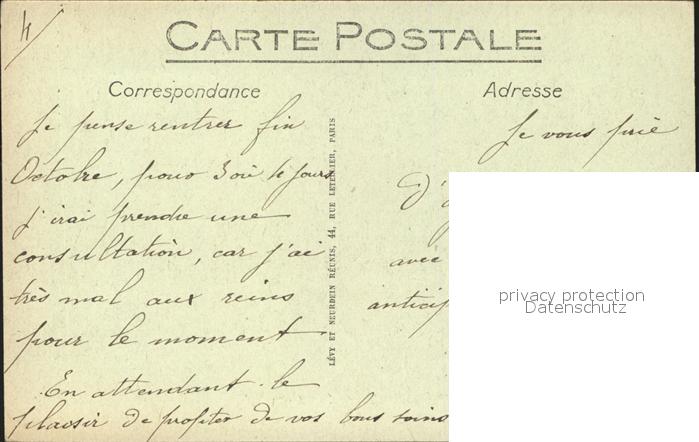 4
CARTE POSTALE
Correspondance
Je pense rentrer fin
Octobre, pour 3 ou 4 jours
j'irai prendre une
consultation, car j'ai
très mal aux reins
pour le moment
En attendant le
plaisir de profiter de vos bons soins
LÉVY ET NEURDEIN RÉUNIS, 44, RUE LETELLIER, PARIS
Adresse
Je vous prie
d'
avec
anticip
privacy protection
Datenschutz